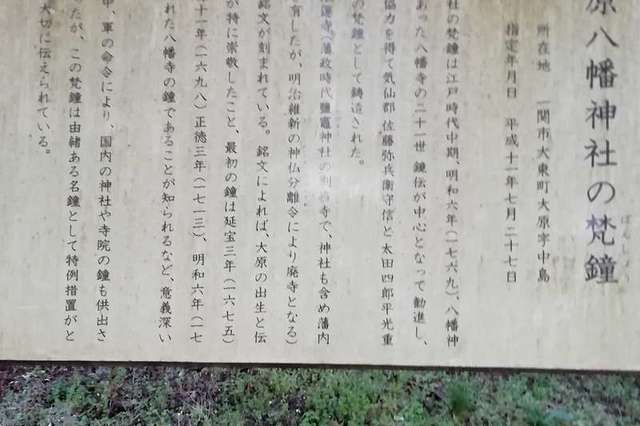 原八幡神社の梵鐘
ぼんしょう
所在地 一関市大東町大原字中島
指定年月日 平成十一年七月二十七日
社の梵鐘は江戸時代中期、明和六年(一七六九)、八幡神
あった八幡寺の二十一世 鏡伝が中心となって勧進し、
協力を得て気仙郡 佐藤弥兵衛守信と太田四郎平光重
の梵鐘として鋳造された。
(藩政時代鹽竈神社の別当寺で、神社も含め藩内
有したが、明治維新の神仏分離令により廃寺となる)
銘文が刻まれている。銘文によれば、大原の出生と伝
が特に崇敬したこと、最初の鐘は延宝三年(一六七五)
十一年(一六九八)正徳三年(一七一三)、明和六年(一七
れた八幡寺の鐘であることが知られるなど、意義深い
中、軍の命令により、国内の神社や寺院の鐘も供出さ
たが、この梵鐘は由緒ある名鐘として特例措置がと
大切に伝えられている。